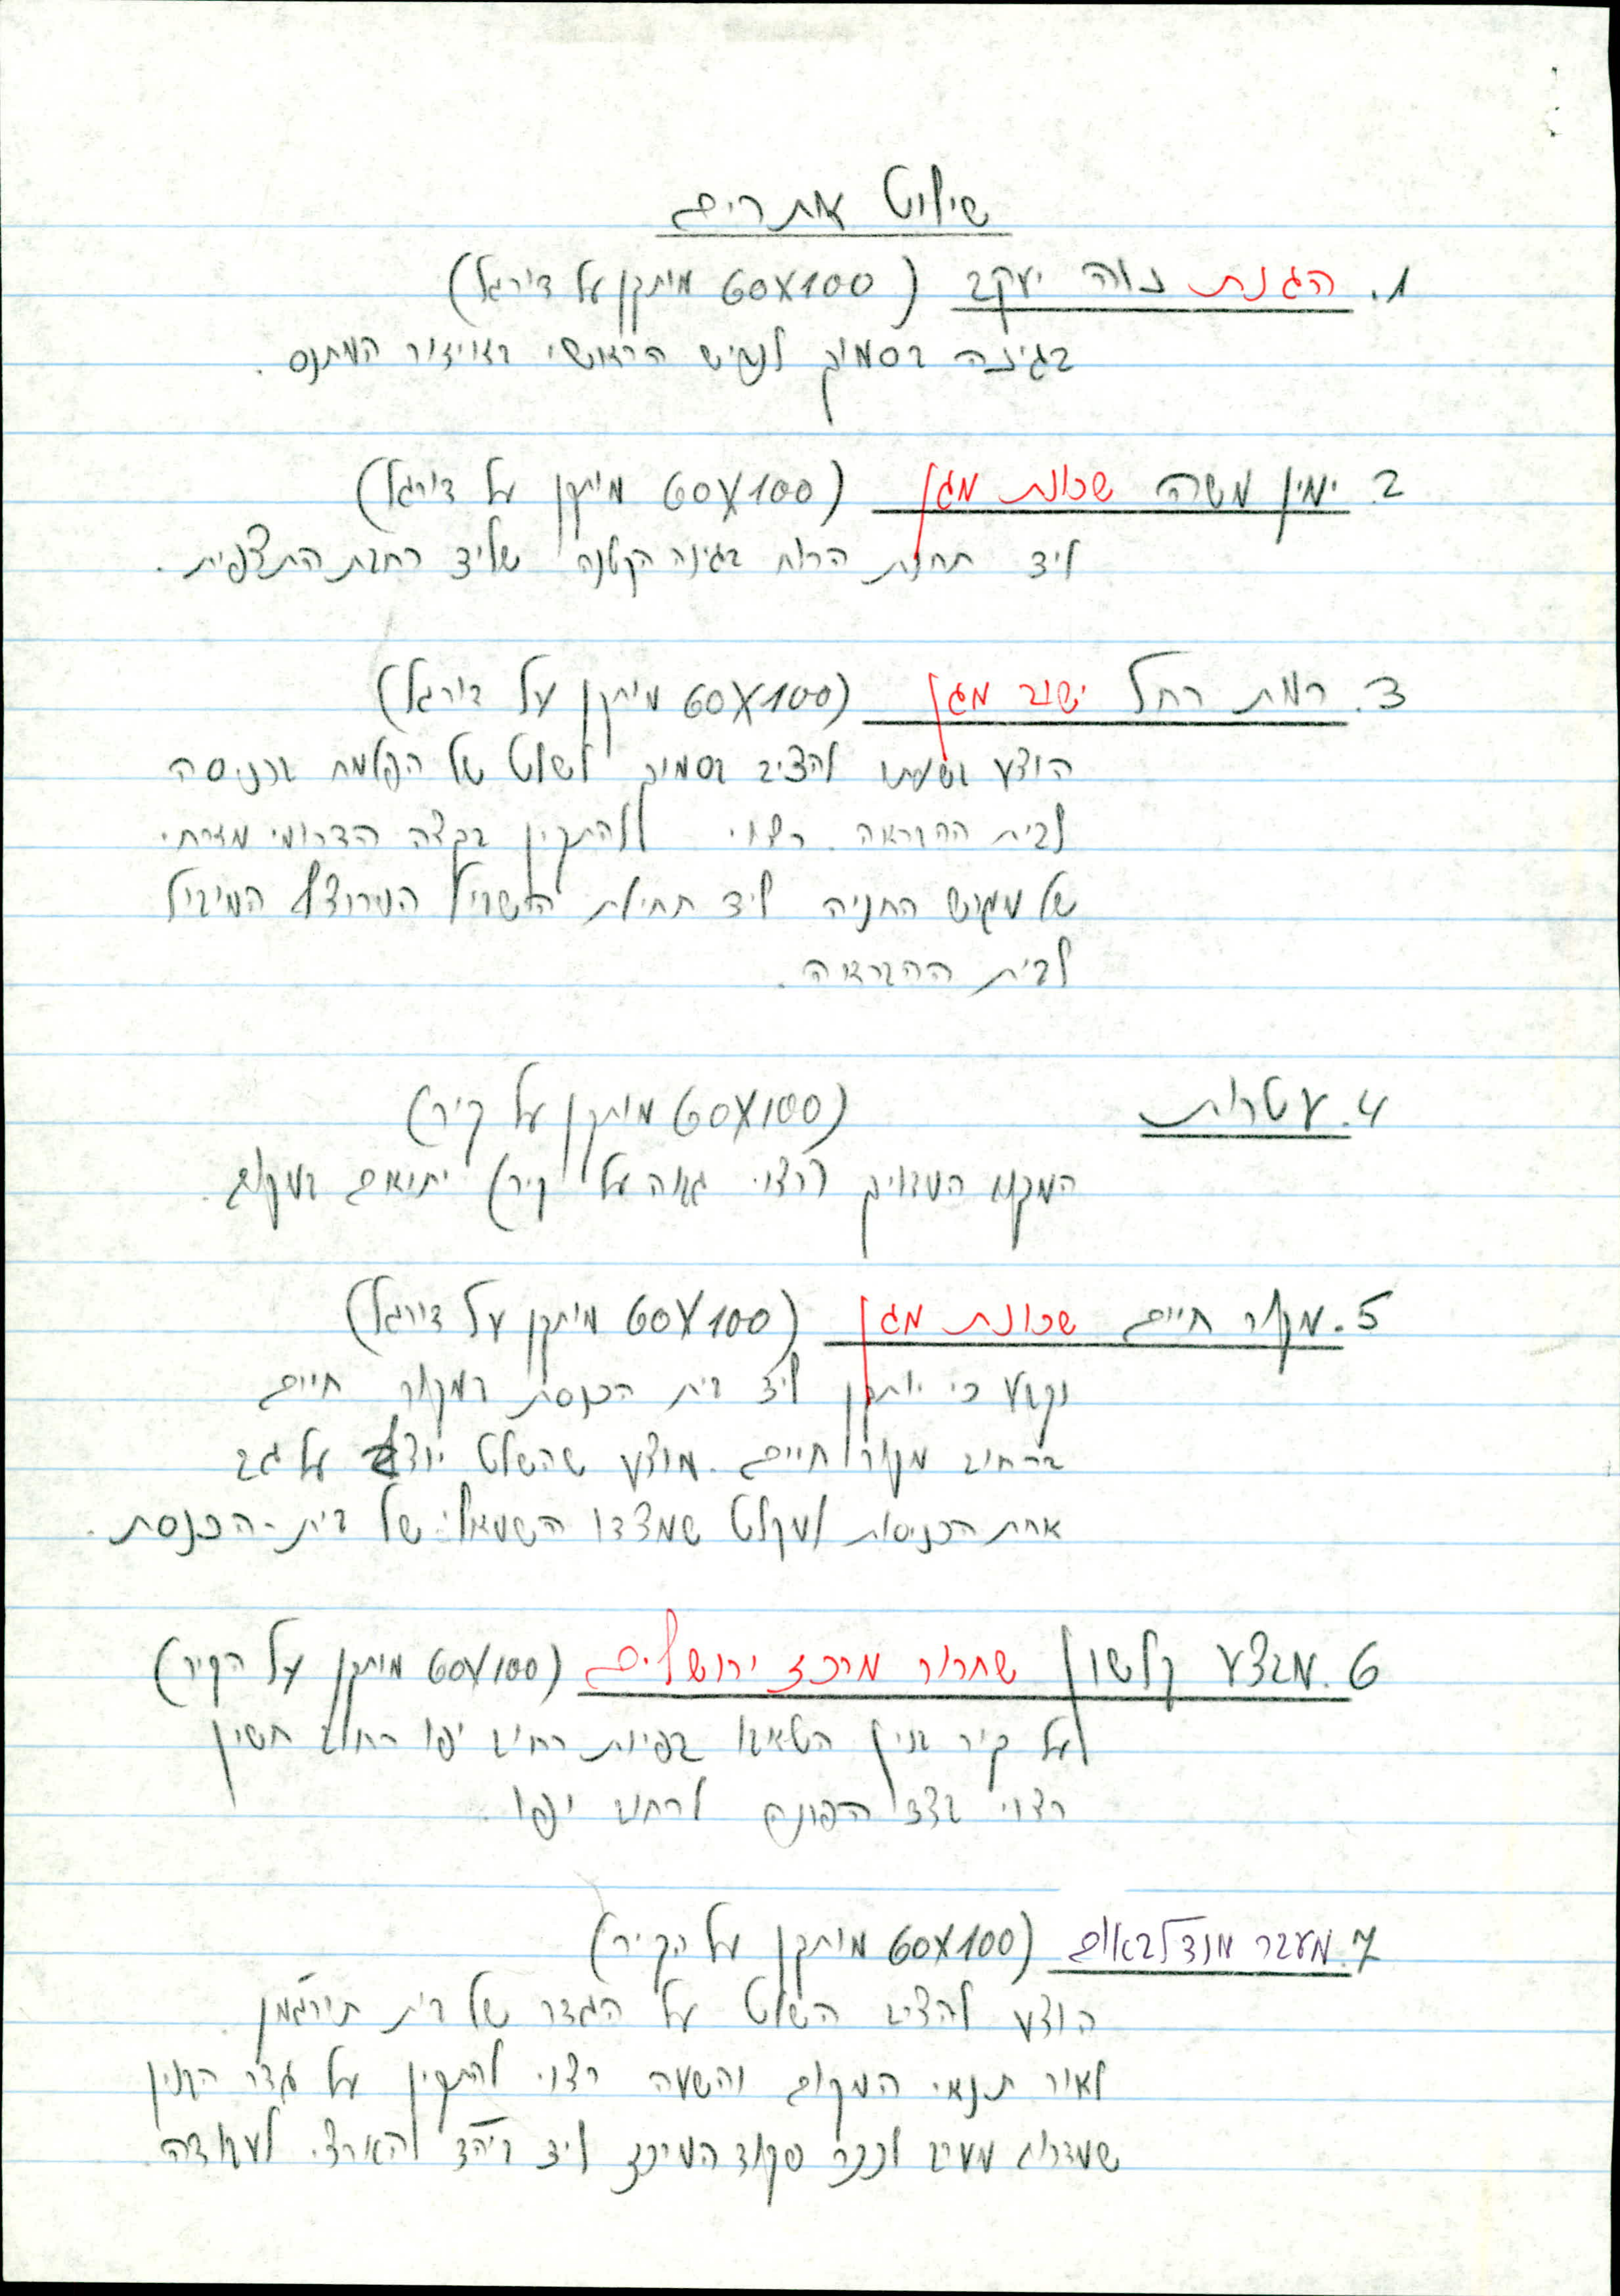 שילוט אתרים
1. הגנת נווה יעקב (60X100 מותקן על דורגל)
בגינה בסמוך לכביש הראשי באיזור המתנס.
2. ימין משה שכונת מגן (60X100 מותקן על דורגל)
ליד תחנת הרוח בגינה הקטנה שליד רחבת התצפית.
3. רמת רחל ישוב מגן (60X100 מותקן על דורגל)
הוצע בשעתו להציב בסמוך לשלט של הפלמח בכניסה
לבית ההבראה. רצוי להתקין בקצה הדרומי מזרחי
של מגרש החניה ליד תחילת השביל המרוצף המוביל
לבית ההבראה.
4. עטרות (60X100 מותקן על קיר)
המקום המדויק (רצוי גבוה על קיר) יתואם במקום.
5. מקור חיים שכונת מגן (60X100 מותקן על דורגל)
נקבע כי יותקן ליד בית הכנסת במקור חיים
ברחוב מקור חיים. מוצע שהשלט יוצב על גב
אחת הכניסות למקלט שמצדו השמאלי של בית-הכנסת.
6. מבצע קלשון שחרור מרכז ירושלים (60X100 מותקן על הקיר)
על קיר בנין בפינת רחוב יפו רחוב חשין
רצוי בצד הפונה לרחוב יפו.
7. מעבר מנדלבאום (60X100 מותקן על הקיר)
הוצע להציב השלט על הגדר של בית תורג'מן.
לאור תנאי המקום והשעה רצוי להתקין על גדר הבנין
שמדרום מערב לככר פקוד המרכז ליד הארצי לעבודה.